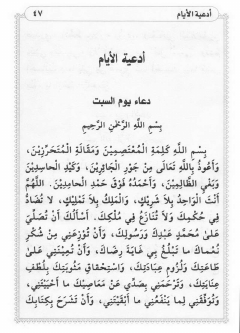 أدعية الأيام ٤٧
أدعية الأيام
دعاء يوم السبت
بِسْمِ اللَّهِ الرَّحْمَنِ الرَّحِيمِ
بِسْمِ اللَّهِ كَلِمَةِ الْمُعْتَصِمِينَ وَمَقَالَةِ الْمُتَحَرِّزِينَ،
وَأَعُوذُ بِاللَّهِ تَعَالَى مِنْ جَوْرِ الْجَائِرِينَ، وَكَيْدِ الْحَاسِدِينَ
وَبَغْيِ الظَّالِمِينَ، وَأَحْمَدُهُ فَوْقَ حَمْدِ الْحَامِدِينَ. اللَّهُمَّ
أَنْتَ الْوَاحِدُ بِلَا شَرِيكٍ، وَالْمَلِكُ بِلَا تَمْلِيكٍ، لَا تُضَادُّ
فِي حُكْمِكَ وَلَا تُنَازَعُ فِي مُلْكِكَ. أَسْأَلُكَ أَنْ تُصَلِّيَ
عَلَى مُحَمَّدٍ عَبْدِكَ وَرَسُولِكَ، وَأَنْ تُوزِعَنِي مِنْ شُكْرِ
نُعْمَاكَ مَا تَبْلُغُ بِي غَايَةَ رِضَاكَ، وَأَنْ تُعِينَنِي عَلَى
طَاعَتِكَ وَلُزُومِ عِبَادَتِكَ، وَاسْتِحْقَاقِ مَثُوبَتِكَ بِلُطْفِ
عِنَايَتِكَ، وَتَرْحَمَنِي بِصَدِّي عَنْ مَعَاصِيكَ مَا أَحْيَيْتَنِي،
وَتُوَفِّقَنِي لِمَا يَنْفَعُنِي مَا أَبْقَيْتَنِي، وَأَنْ تَشْرَحَ بِكِتَابِكَ